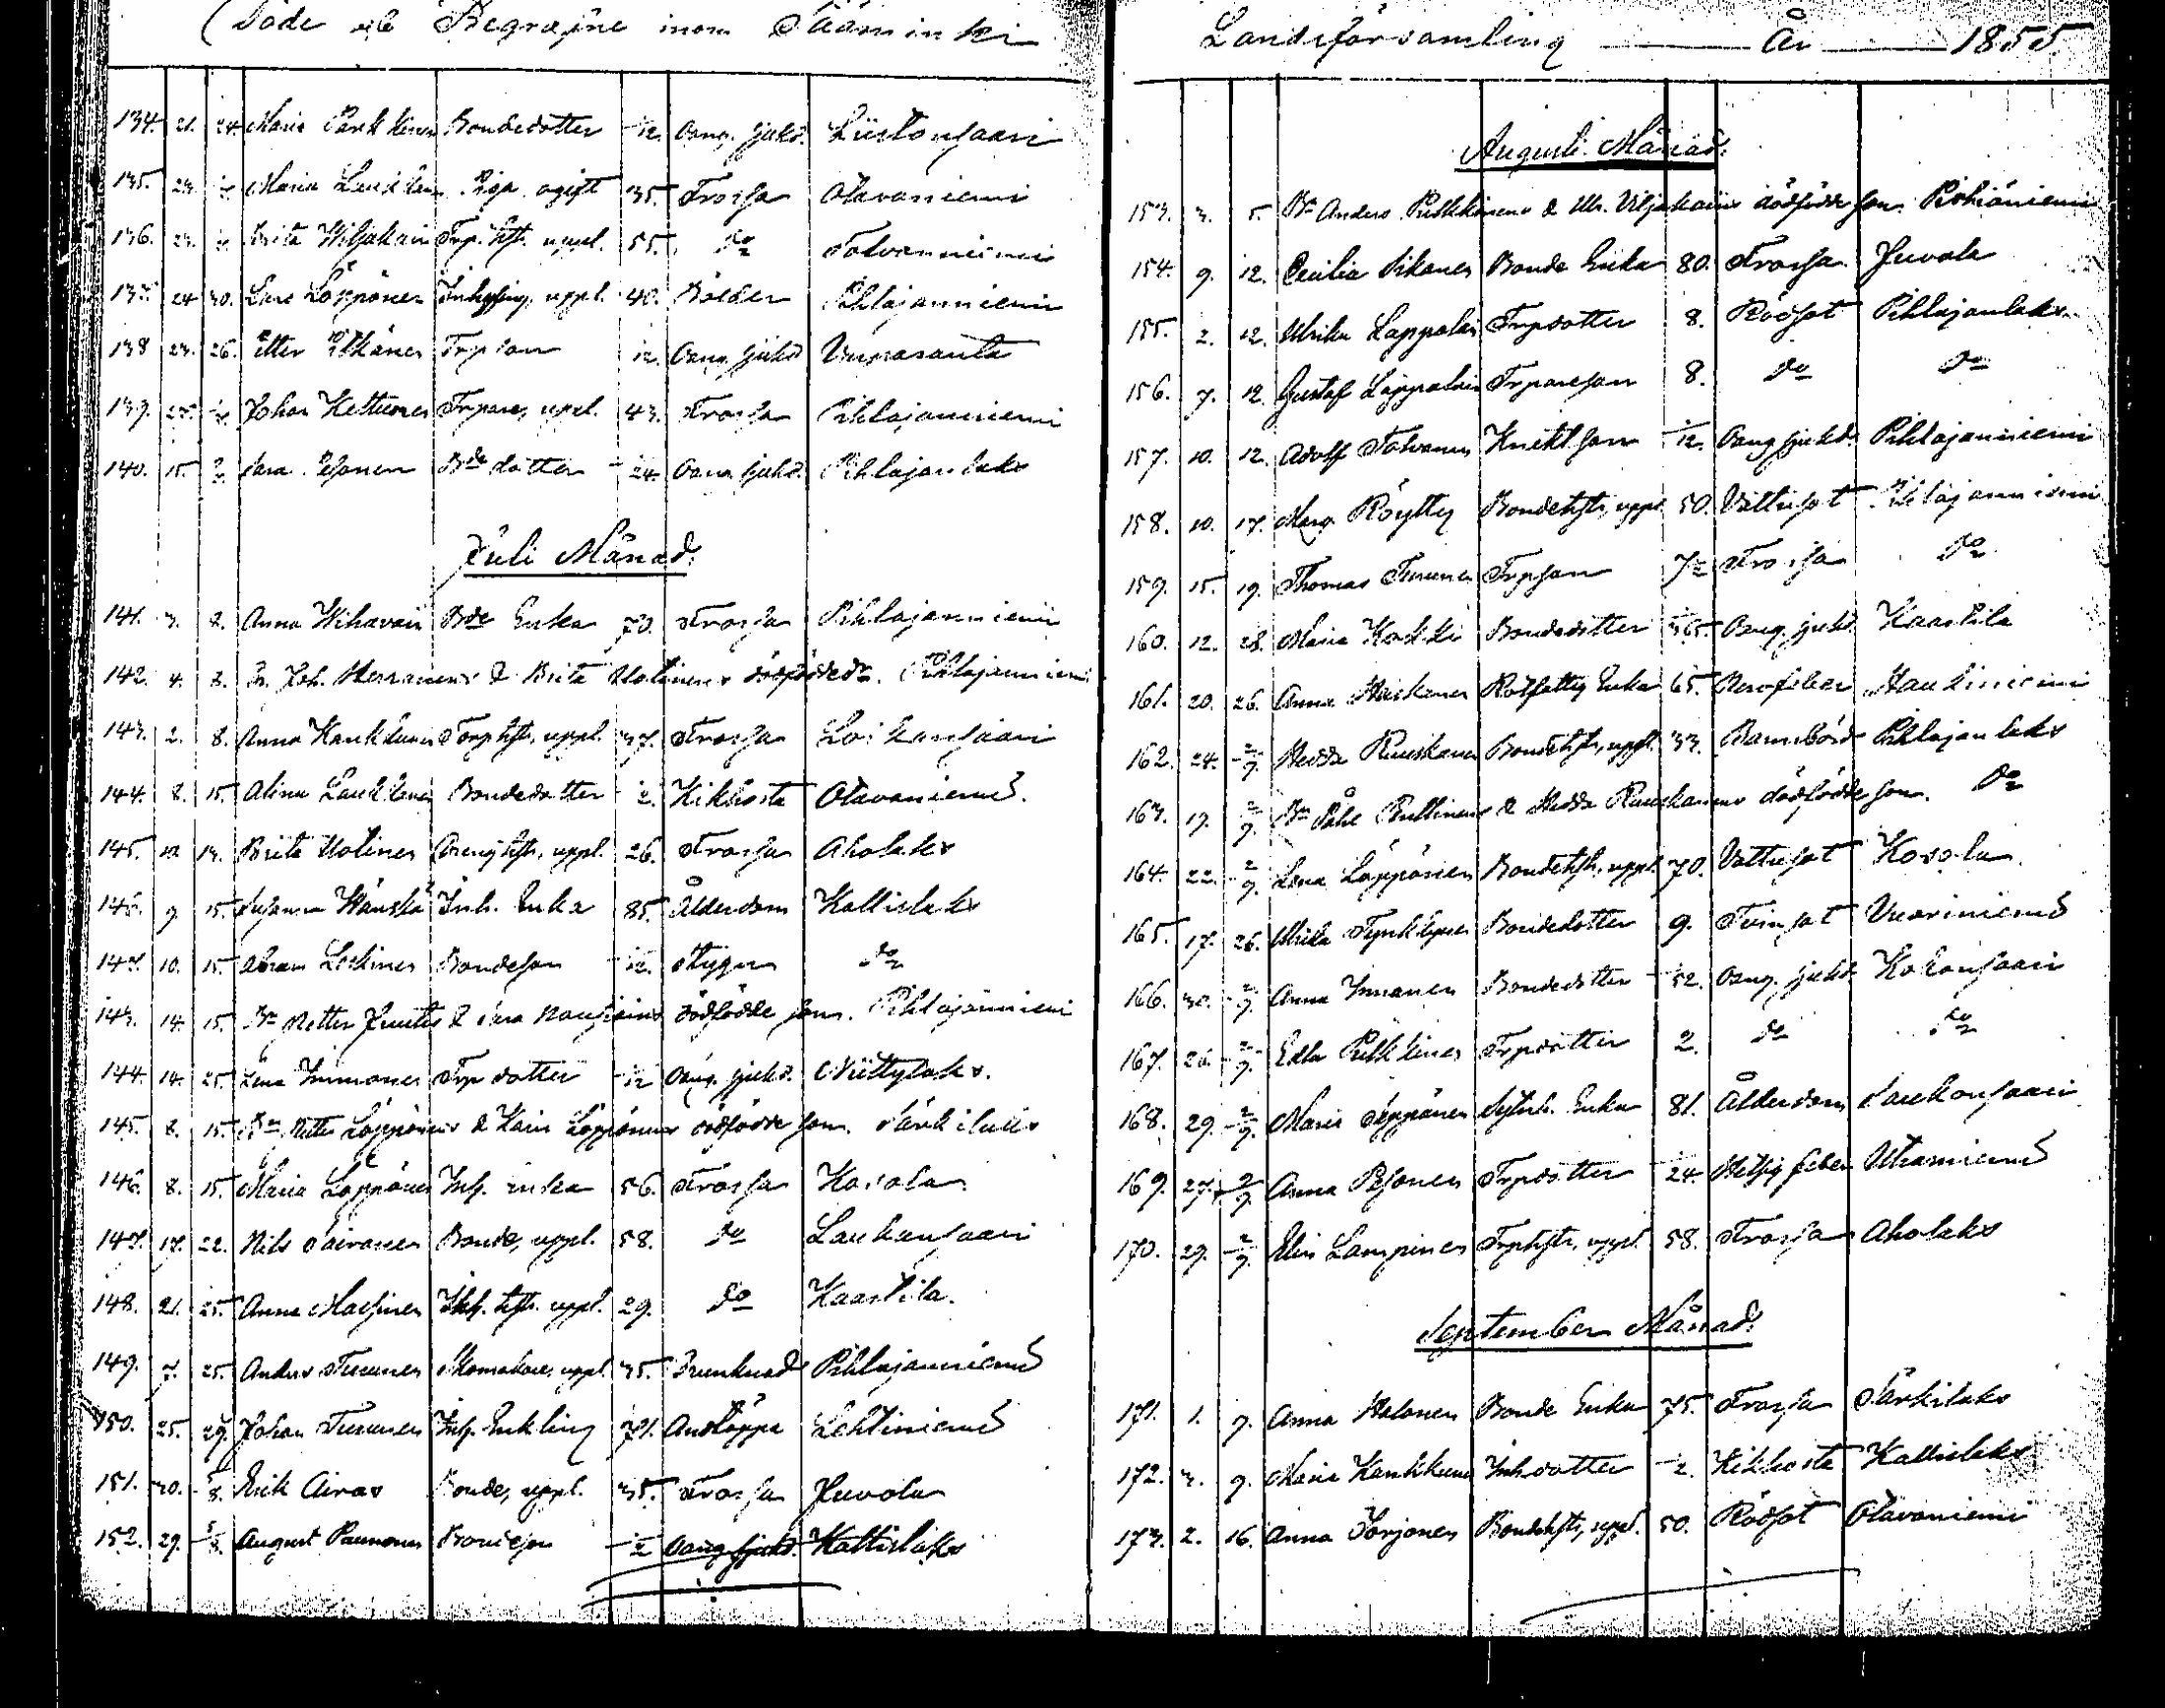 Döde och Begrafne inom Sääminki
134. 21. 24. Maria Parkkinen Bondedotter 1/12. Oang. sjukd. Liistonsaari
135. 23. Maria Laukkanen Pig. ogift 35. Frossa Otavaniemi
136. 23. Brita Wiljakain Trp. hstr. uppl. 55. do Tolvanniemi
137. 24 30. Lars Löppönen Inhysing, uppl. 40. Bölder Pihlajanniemi
138 23. 26. Petter Pitkänen Trp son 1/12. Oang. sjukd
139. 25. Johan Kettunen Trpare, uppl. 43. Frossa Pihlajanniemi
140. 15. Sara Bde dotter 24. Oang. sjukd. Pihlajanlaks
Juli Månad:
141. 3. 8. Anna Wihavain Bde Enka 70. Frossa Pihlajanniemi
142. 4. 8. Joh. & Brita Motinens dödfödde dr. Pihlajanniemi
143. 2. 8. Anna Kankkunen Torphstr, uppl. 37. Frossa Loikansaari
144. 8. 15. Alina Laukkanen Bondedotter 1/2. Kikhosta Otavaniemi.
145. 10. 13. Brita Motinen Drenghstr, uppl. 26. Frossa Aholaks
146. 9 15. Susanna Inh. Enka 85. Ålderdom Kallislaks
147. 10. 15. Abram Leskinen Bondeson 1/12. Stygn do
143. 14. 15. Bn Petter & Sara dödfödde son. Pihlajanniemi
144. 14. 25. Lena Immonen Trp dotter 1/12 Oang. sjukd. Niittylaks.
145. 8. 15. Bn Petter Löppönens & Karin Löppönens dödfödde son. Särkilaks
146. 8. 15. Maria Löppönen Inh. enka 56. Frossa Kosola.
147. 17. 22. Nils Sairanen Bonde, uppl. 58. do Laukansaari
148. 21. 25. Anna Massinen Inh. hstr. uppl. 29. do Kaartila.
149. 7. 25. Anders Turunen Skomakare, uppl. 35. Drunknad Pihlajanniemi
150. 25. 29. Johan Turunen Inh. Enkling 71. Andtäppa Lehtiniemi
151. 30. 5/8. Erik Airas Bonde, uppl. 35. Frossa Juvola
152. 29. 5/8. August Paunonen Bondeson 1/2 Oang. sjukd. Kallislaks
Landsförsamling År 1855
Augusti Månad:
153. 3. 5. Bn Anders Pulkkinens & Ulr. Viljakains dödfödde son. Pihlajaniemi
154. 9. 12. Cecilia Sikanen Bonde Enka 80. Frossa Juvola
155. 2. 12. Ulrika Lappalain Trpdotter 8. Rödsot Pihlajanlaks
156. 7. 12. Gustaf Lappalain Trpareson 8. do do
157. 10. 12. Adolf Tolvanen Knektson 1/12. Oang. sjukd. Pihlajanniemi
158. 10. 17. Marg. Röytty Bondehstr, uppl 50. Vattusot Pihlajanniemi
159. 15. 19. Thomas Turunen Trpson Frossa do
160. 12. 28. Maria Kokki Bondedotter Oang. sjukd. Kaartila
161. 20. 26. Anna Heiskanen Rotfattig Enka 65. Nervfeber Haukiniemi
162. 24. 2/9. Hedda Ruuskanen Bondehstr, uppl. 33. Barnsbörd Pihlajanlaks
163. 19. 2/9. Bn Påhl Pulkinens & Hedda Ruuskanens dödfödde son. do
164. 22. 2/9. Lena Löppönen Bondehstr, uppl. 70. Vattusot Kosola
165. 17. 26. Ulrika Tynkkynen Bondedotter 9. Tvinsot Vuoriniemi
166. 30. 2/9. Anna Immonen Bondedotter 1/52. Oang. sjukd. Kokonsaari
167. 26. 2/9. Edla Pulkkinen Trpdotter 2. do do
168. 29. 2/9. Maria Seppänen Sytnh. Enka 81. Ålderdom Laukansaari
169. 27. 2/9. Anna Pesonen Trpdotter 1/24. Hetsig feber Utrasniemi
170. 29. 2/9. Elin Lampinen Trphstr, uppl. 58. Frossa Aholaks
September Månad:
171. 1. 9. Anna Halonen Bonde Enka 75. Frossa Särkilaks
172. 3. 9. Maria Kankkunen Inhdotter 1/2. Kikhosta Kallislaks
173. 2. 16. Anna Torjonen Bondehstr, uppl. 50. Rödsot Otavaniemi